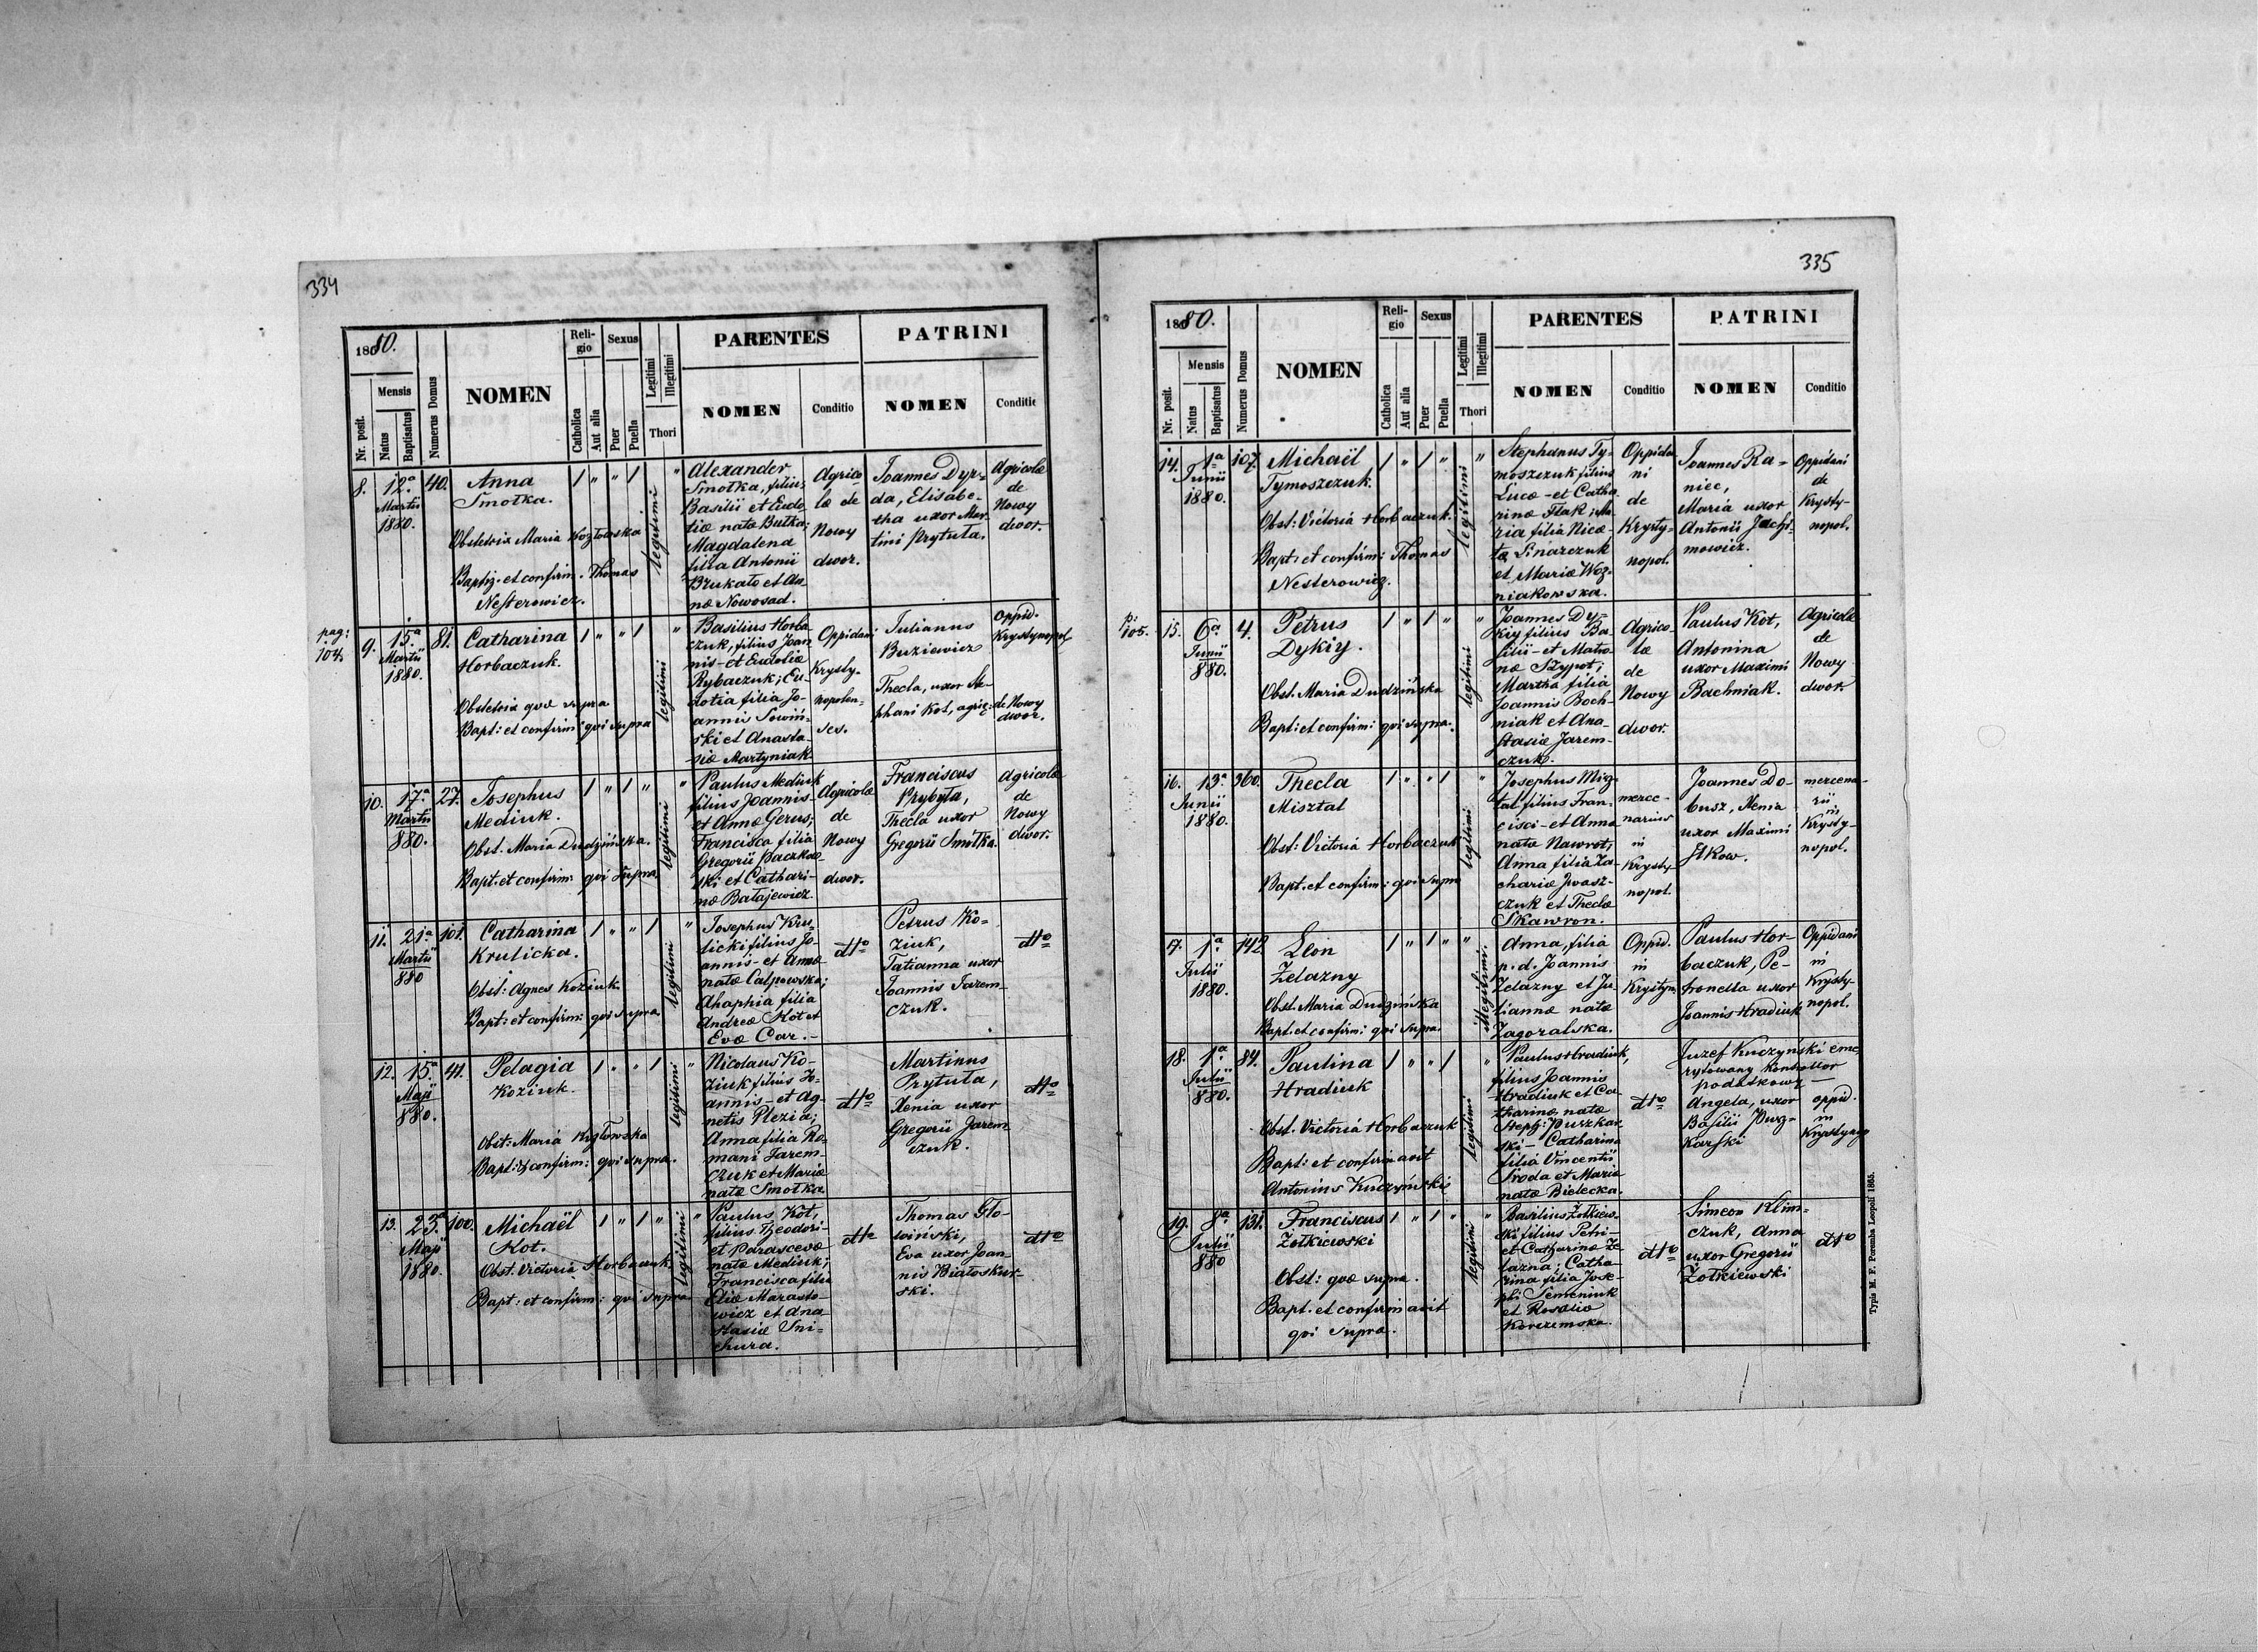 334
1880.
Nr. posit.
Mensis
Natus
Baptisatus
Numerus Domus
NOMEN
Reli-
gio
Catholica
Aut alia
Sexus
Puer
Puella
Legitimi
Illegitimi
Thori
PARENTES
NOMEN
Conditio
PATRINI
NOMEN
Conditio
8.
12ª
Martii
1880.
40.
Anna
Smolka.
Obstetrix Maria Kozłowska
Baptiz. et confirm. Thomas
Nesterowicz.
1 " " 1
legitimi
"
Alexander
Smotka, filius
Basilii et Eudo-
xiæ natæ Butka;
Magdalena
filia Antonii
Brukato et An-
næ Nowosad.
Agrico-
læ de
Nowy
dwor.
Joannes Dyr-
da, Elisabe-
tha uxor Mar-
tini Prytuła.
Agricolæ
de
Nowy
dwor.
pag:
104.
9.
15ª
Martii
1880.
81.
Catharina
Horbaczuk.
Obstetrix quæ supra
Bapt: et confirm: qui supra
1 " " 1
legitimi
"
Basilius Horba-
czuk, filius Joan-
nis - et Eudoxiæ
Rybaczuk; Eu-
dotia filia Jo-
annis Sowiń-
ski et Anasta-
siæ Martyniak
Oppidani
Krysty-
nopolen-
ses.
Julianus
Buziewicz
Thecla, uxor Ste-
phani Kot, agric:
Oppid.
Krystynopol
de Nowy
dwor.
10.
17ª
Martii
880.
27.
Josephus
Mediuk.
Obst. Maria Dudzińska.
Bapt. et confirm: qui supra
1 " 1 "
legitimi
"
Paulus Mediuk
filius Joannis -
et Annæ Gerus;
Francisca filia
Gregorii Paczkow-
ski et Cathari-
næ Batajewicz.
Agricolæ
de
Nowy
dwor.
Franciscus
Prybyła,
Thecla uxor
Gregorii Smotka.
Agricolæ
de
Nowy
dwor.
11.
21ª
Martii
880
101.
Catharina
Krulicka.
Obst: Agnes Koziuk.
Bapt: et confirm: qui supra.
1 " " 1
legitimi
"
Josephus Kru-
licki filius Jo-
annis - et Annæ
natæ Calpowska;
Ahaphia filia
Andreæ Kot et
Evæ Car. -
dtto
Petrus Ko-
ziuk,
Tatianna uxor
Joannis Jarem-
czuk.
dtto
12.
15ª
Maji
880.
41.
Pelagia
Koziuk.
Obst: Maria Kozłowska
Bapt: & confirm: qui supra.
1 " " 1
legitimi
"
Nicolaus Ko-
ziuk filius Jo-
annis - et Ag-
netis Plezia;
Anna filia Ro-
mani Jarem-
czuk et Mariæ
natæ Smotka
dtto
Martinus
Prytuła,
Xenia uxor
Gregorii Jarem-
czuk.
dtto
13.
23ª
Maji
1880.
100.
Michaël
Kot.
Obst. Victoria Horbaczuk.
Bapt: et confirm: qui supra
1 " 1 "
legitimi
"
Paulus Kot,
filius Theodori -
et Parascevæ
natæ Mediuk;
Francisca filia
Eliæ Marasto-
wicz et Ana-
stasiæ Sni-
chura.
dtto
Thomas Gło-
wiński,
Eva uxor Joan-
nis Białoskur-
ski.
dtto
335
1880.
Nr. posit.
Mensis
Natus
Baptisatus
Numerus Domus
NOMEN
Reli-
gio
Catholica
Aut alia
Sexus
Puer
Puella
Legitimi
Illegitimi
Thori
PARENTES
NOMEN
Conditio
PATRINI
NOMEN
Conditio
14.
1ª
Junii
1880.
107.
Michaël
Tymoszczuk.
Obst: Victoria Horbaczuk.
Bapt: et confirm: Thomas
Nesterowicz.
1 " 1 "
legitimi
"
Stephanus Ty-
moszczuk filius
Lucæ - et Catha-
rinæ Ptak; Ma-
ria filia Nicæ-
tæ Sinarczuk
et Mariæ Woz-
niakowska.
Oppida
ni
de
Krysty-
nopol.
Joannes Ra-
niec,
Maria uxor
Antonii Jachi-
mowicz.
Oppidani
de
Krysty-
nopol.
p:
105.
15.
6ª
Junii
880.
4.
Petrus
Dykiy.
Obst. Maria Dudzińska
Bapt: et confirm: qui supra.
1 " 1 "
legitimi
"
Joannes Dy-
kiy filius Ba-
silii - et Matro-
næ Szypot;
Martha filia
Joannis Boch-
niak et Ana-
stasiæ Jarem-
czuk.
Agrico-
læ
de
Nowy
dwor.
Paulus Kot,
Antonina
uxor Maximi
Bachniak.
Agricolæ
de
Nowy
dwor.
16.
13ª
Junii
1880.
360.
Thecla
Misztal
Obst: Victoria Horbaczuk
Bapt. et confirm: qui supra
1 " " 1
legitimi
"
Josephus Misz-
tal filius Fran-
cisci - et Annæ
natæ Nawrot;
Anna filia Za-
chariæ Iwasz-
czuk et Theclæ
Skawron.
merce-
narius
in
Krysty-
nopol.
Joannes Do-
busz, Xenia
uxor Maximi
Ilkow.
mercena-
rii
in
Krysty-
nopol.
17.
1ª
Julii
1880.
142
Leon
Żelazny
Obst. Maria Dudzińska
Bapt. et confirm: qui supra.
1 " 1 "
"
illegitimi.
Anna, filia
p. d. Joannis
Żelazny et Ju-
liannæ natæ
Zagoralska.
Oppid.
in
Krystyn
Paulus Hor-
baczuk, Pe-
tronella uxor
Joannis Hradiuk
Oppidani
in
Krysty-
nopol.
18.
1ª
Julii
880.
84.
Paulina
Hradiuk
Obst. Victoria Horbaczuk
Bapt: et confirmavit
Antonius Kuczyński
1 " " 1
legitimi
"
Paulus Hradiuk,
filius Joannis
Hradiuk et Ca-
tharinæ natæ
Steph: Puszkar-
ski - Catharina
filia Vincentii
Sroda et Mariæ
natæ Bielecka.
dtto
Juzef Kuczyński eme-
rytowany kontrollor
podatkowy -
Angela, uxor
Basilii Puzz-
karski
oppid.
in
Krystynop
19.
8ª
Julii
880
131.
Franciscus
Żołkiewski
Obst: quæ supra.
Bapt. et confirmavit
qui supra.
1 " 1 "
legitimi
"
Basilius Żołkiew-
ski filius Petri -
et Catharinæ Że-
lazna; Catha-
rina filia Jose-
phi Semeniuk
et Rosaliæ
Korczemska.
dtto
Simeon Klim-
czuk, Anna
uxor Gregorii
Żołkiewski
dtto
Typis M. F. Poremba Leopoli 1865.